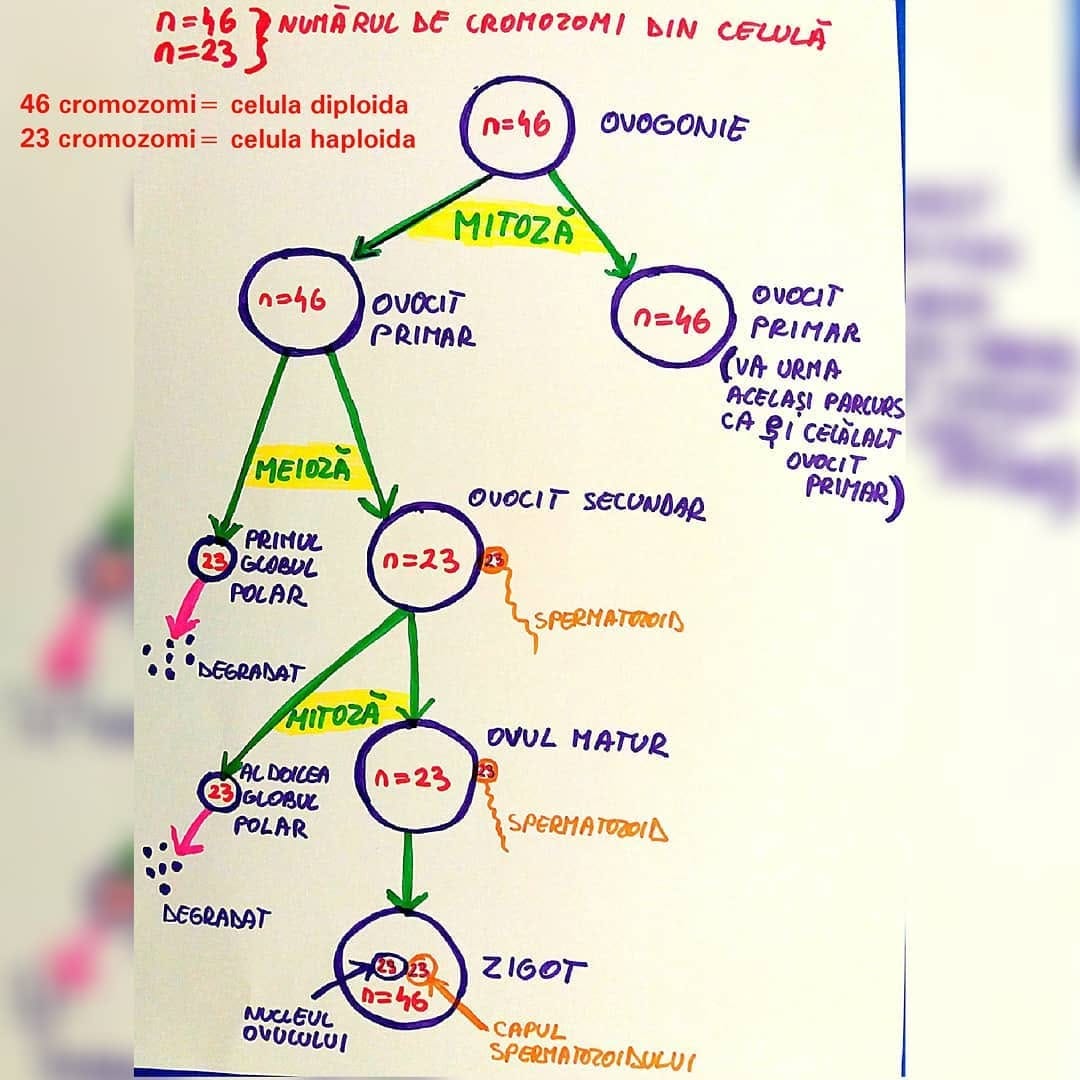 n=46
n=23
NUMĂRUL DE CROMOZOMI DIN CELULĂ
46 cromozomi= celula diploida
23 cromozomi= celula haploida
n=46
OVOGONIE
MITOZĂ
n=46
OVOCIT
PRIMAR
n=46
OVOCIT
PRIMAR
(VA URMA
ACELAȘI PARCURS
CA ȘI CELĂLALT
OVOCIT
PRIMAR)
MEIOZĂ
OVOCIT SECUNDAR
23
PRIMUL
GLOBUL
POLAR
n=23
23
SPERMATOZOID
DEGRADAT
MITOZĂ
OVUL MATUR
23
AL DOILEA
GLOBUL
POLAR
n=23
23
SPERMATOZOID
DEGRADAT
23 23
n=46
ZIGOT
NUCLEUL
OVULULUI
CAPUL
SPERMATOZOIDULUI